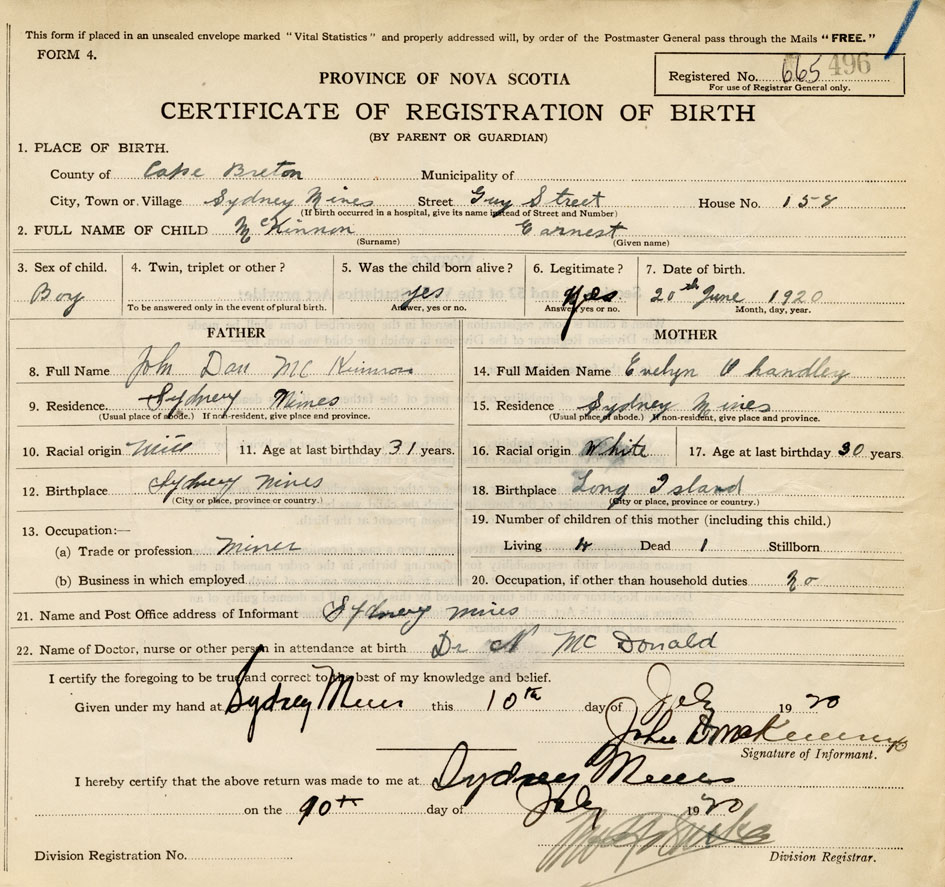 This form if placed in an unsealed envelope marked "Vital Statistics" and properly addressed will, by order of the Postmaster General pass through the Mails "FREE."
FORM 4.
PROVINCE OF NOVA SCOTIA
Registered No. 665 496
For use of Registrar General only.
CERTIFICATE OF REGISTRATION OF BIRTH
(BY PARENT OR GUARDIAN)
1. PLACE OF BIRTH.
County of Cape Breton Municipality of
City, Town or Village Sydney Mines Street Guy Street House No. 158
(If birth occurred in a hospital, give its name instead of Street and Number)
2. FULL NAME OF CHILD McKinnon Earnest
(Surname) (Given name)
3. Sex of child. 4. Twin, triplet or other? 5. Was the child born alive? 6. Legitimate? 7. Date of birth.
Boy yes Yes 20th June 1920
To be answered only in the event of plural birth. Answer, yes or no. Answer, yes or no. Month, day, year.
FATHER MOTHER
8. Full Name John Dan McKinnon 14. Full Maiden Name Evelyn O handley
9. Residence. Sydney Mines 15. Residence Sydney Mines
(Usual place of abode.) If non-resident, give place and province. (Usual place of abode.) If non-resident, give place and province.
10. Racial origin 11. Age at last birthday 31 years. 16. Racial origin White 17. Age at last birthday 30 years
12. Birthplace Sydney Mines 18. Birthplace Long Island
(City or place, province or country.) (City or place, province or country.)
13. Occupation:— 19. Number of children of this mother (including this child.)
(a) Trade or profession Miner Living 4 Dead 1 Stillborn
(b) Business in which employed 20. Occupation, if other than household duties no
21. Name and Post Office address of Informant Sydney mines
22. Name of Doctor, nurse or other person in attendance at birth Dr McDonald
I certify the foregoing to be true and correct to the best of my knowledge and belief.
Given under my hand at Sydney Mines this 10th day of July 1920
John D McKinnon
Signature of Informant.
I hereby certify that the above return was made to me at Sydney Mines
on the 10th day of July 1920
Division Registration No. Division Registrar.